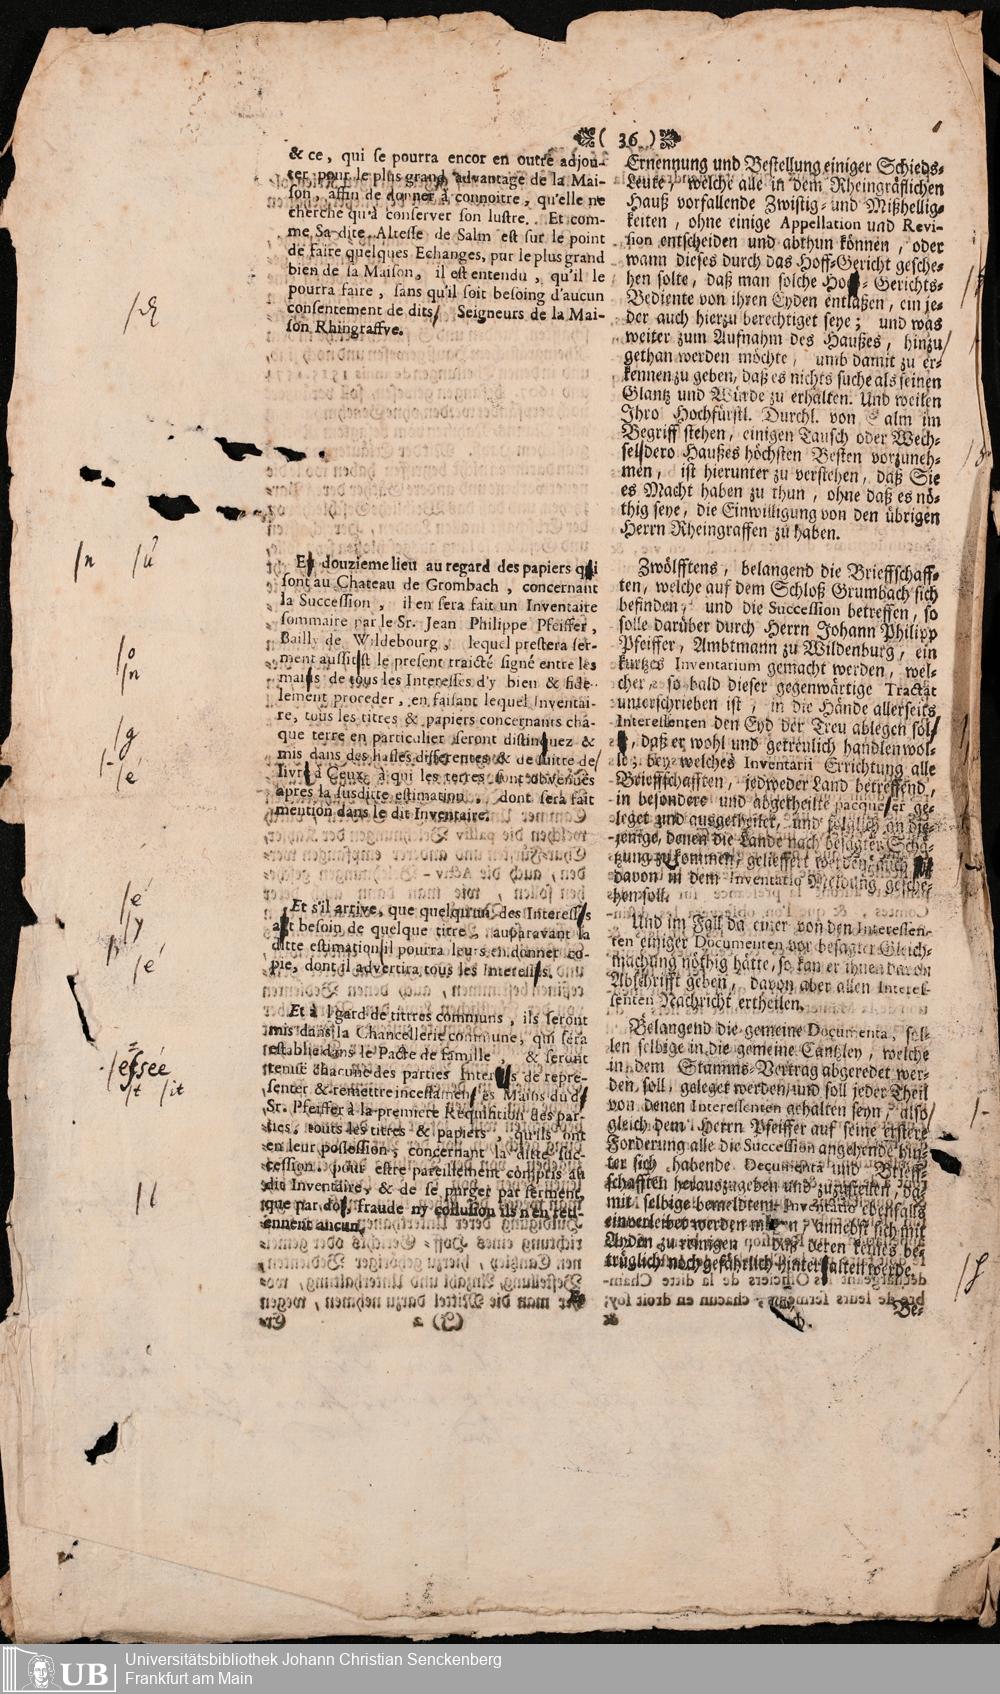 ( 36 )
& ce, qui se pourra encor en outre adjou-
ter pour le plus grand advantage de la Mai-
son, affin de donner à connoitre, qu'elle ne
cherche qu'à conserver son lustre. Et com-
me Sa dite Altesse de Salm est sur le point
de faire quelques Echanges, pur le plus grand
bien de sa Maison, il est entendu, qu'il le
pourra faire, sans qu'il soit besoing d'aucun
consentement de dits Seigneurs de la Mai-
son Rhingraffve.
En douzieme lieu au regard des papiers qui
sont au Chateau de Grombach, concernant
la Succession, il en sera fait un Inventaire
sommaire par le Sr. Jean Philippe Pfeiffer,
Bailly de Wildebourg, lequel prestera ser-
ment aussitst le present traicté signé entre les
mains de tous les Interesses d'y bien & fide-
lement proceder, en faisant lequel Inventai-
re, tous les titres & papiers concernants cha-
que terre en particulier seront distinquez &
mis dans des hasles differentes & de suitte de
livré à Ceux, à qui les terres sont obvenues
apres la susditte estimation, dont sera fait
mention dans le dit Inventaire.
Et s'il arrive, que quelqu'un des Interess s
a t besoin de quelque titre, auparavant la
ditte estimation il pourra leurs en donner co-
pie, dont il advertira tous les Interess s.
Et à l gard de tittres communs, ils seront
mis dans la Chancellerie commune, qui sera
establie dans le Pacte de famille, & seront
tenus chacune des parties Inter s de repre-
senter & remettre incessamen es Mains du d
Sr. Pfeiffer à la premiere Requisition des par-
ties, touts les titres & papiers, qu'ils ont
en leur possession, concernant la ditte suc-
cession, pour estre pareillement compris au
dit Inventaire, & de se purger par serment,
que par dol, fraude ny collusion ils n'en reti-
ennent aucun.
Ernennung und Bestellung einiger Schieds-
Leute, welche alle in dem Rheingräflichen
Hauß vorfallende Zwistig- und Mißhellig-
keiten, ohne einige Appellation und Revi-
sion entscheiden und abthun können, oder
wann dieses durch das Hoff-Gericht gesche-
hen solte, daß man solche Ho - Gerichts-
Bediente von ihren Eyden entlaßen, ein je-
der auch hierzu berechtiget seye; und was
weiter zum Aufnahm des Haußes, hinzu
gethan werden möchte, umb damit zu er-
kennen zu geben, daß es nichts suche als seinen
Glantz und Würde zu erhalten. Und weilen
Ihro Hochfürstl. Durchl. von Salm im
Begriff stehen, einigen Tausch oder Wech-
sel dero Haußes höchsten Besten vorzuneh-
men, ist hierunter zu verstehen, daß Sie
es Macht haben zu thun, ohne daß es nö-
thig seye, die Einwilligung von den übrigen
Herrn Rheingraffen zu haben.
Zwölfftens, belangend die Brieffschaff-
ten, welche auf dem Schloß Grumbach sich
befinden, und die Succession betreffen, so
solle darüber durch Herrn Johann Philipp
Pfeiffer, Ambtmann zu Wildenburg, ein
kurtzes Inventarium gemacht werden, wel-
cher, so bald dieser gegenwärtige Tractat
unterschrieben ist, in die Hände allerseits
Interessenten den Eyd der Treu ablegen sol
, daß er wohl und getreulich handlen wol-
le; bey welches Inventarii Errichtung alle
Brieffschafften, jedweder Land betreffend,
in besondere und abgetheilte pacqueter ge-
leget und ausgetheilet, und folglich an die-
jenige, denen die Lande nach besagter Schä-
tzung zukommen, gelieffert werden, auch
davon in dem Inventario Meldung gesche-
hen soll.
Und im Fall da einer von den Interessen-
ten einiger Documenten vor besagter Gleich-
machung nöthig hätte, so kan er ihnen davon
Abschrifft geben, davon aber allen Interes-
senten Nachricht ertheilen.
Belangend die gemeine Documenta, sol-
len selbige in die gemeine Cantzley, welche
in dem Stamms-Vertrag abgeredet wer-
den soll, geleget werden, und soll jeder Theil
von denen Interessenten gehalten seyn, also
gleich dem Herrn Pfeiffer auf seine erstere
Forderung alle die Succession angehende hin-
ter sich habende Documenta und Brieff-
schafften herauszugeben und zuzustellen, da-
mit selbige bemeldtem Inventario ebenfalls
einverleibet werden m g n, annebst sich mit
Ayden zu reinigen, daß deren keines be-
trüglich noch gefährlich hinter halten werde.
Be-
Universitätsbibliothek Johann Christian Senckenberg
Frankfurt am Main
UB